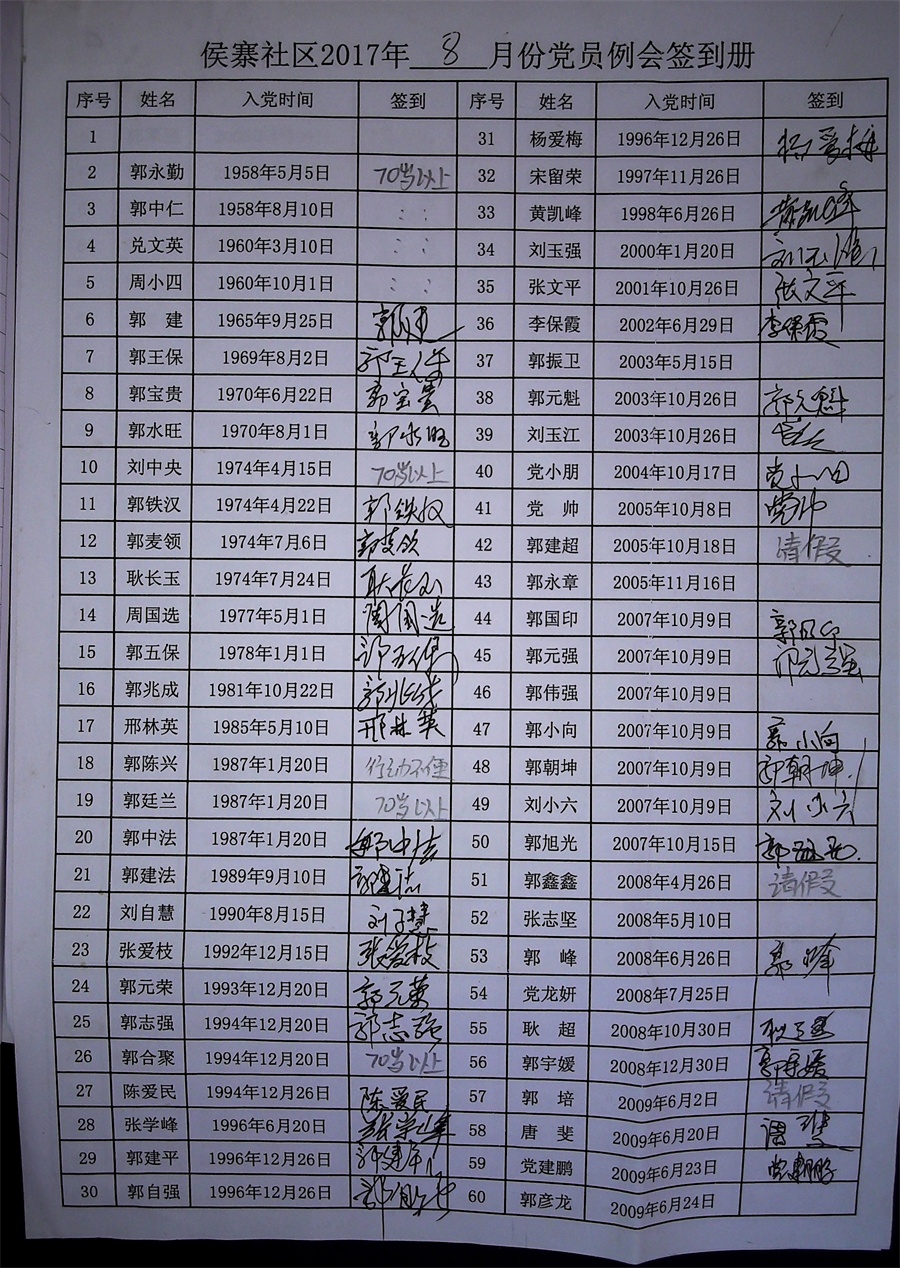 侯寨社区2017年 8 月份党员例会签到册
序号 姓名 入党时间 签到 序号 姓名 入党时间 签到
1 31 杨爱梅 1996年12月26日 杨爱梅
2 郭永勤 1958年5月5日 70岁以上 32 宋留荣 1997年11月26日
3 郭中仁 1958年8月10日 : : 33 黄凯峰 1998年6月26日 黄凯峰
4 兑文英 1960年3月10日 : : 34 刘玉强 2000年1月20日 刘玉强
5 周小四 1960年10月1日 : : 35 张文平 2001年10月26日 张文平
6 郭 建 1965年9月25日 郭建 36 李保霞 2002年6月29日 李保霞
7 郭王保 1969年8月2日 郭王保 37 郭振卫 2003年5月15日
8 郭宝贵 1970年6月22日 郭宝贵 38 郭元魁 2003年10月26日 郭元魁
9 郭水旺 1970年8月1日 郭水旺 39 刘玉江 2003年10月26日
10 刘中央 1974年4月15日 70岁以上 40 党小朋 2004年10月17日 党小朋
11 郭铁汉 1974年4月22日 郭铁汉 41 党 帅 2005年10月8日 党帅
12 郭麦领 1974年7月6日 郭麦领 42 郭建超 2005年10月18日 请假
13 耿长玉 1974年7月24日 耿长玉 43 郭永章 2005年11月16日
14 周国选 1977年5月1日 周国选 44 郭国印 2007年10月9日 郭国印
15 郭五保 1978年1月1日 郭五保 45 郭元强 2007年10月9日 郭元强
16 郭兆成 1981年10月22日 郭兆成 46 郭伟强 2007年10月9日
17 邢林英 1985年5月10日 邢林英 47 郭小向 2007年10月9日 郭小向
18 郭陈兴 1987年1月20日 行动不便 48 郭朝坤 2007年10月9日 郭朝坤
19 郭廷兰 1987年1月20日 70岁以上 49 刘小六 2007年10月9日 刘小六
20 郭中法 1987年1月20日 郭中法 50 郭旭光 2007年10月15日 郭旭光
21 郭建法 1989年9月10日 郭建法 51 郭鑫鑫 2008年4月26日 请假
22 刘自慧 1990年8月15日 刘子慧 52 张志坚 2008年5月10日
23 张爱枝 1992年12月15日 张爱枝 53 郭 峰 2008年6月26日 郭峰
24 郭元荣 1993年12月20日 郭元荣 54 党龙妍 2008年7月25日
25 郭志强 1994年12月20日 郭志强 55 耿 超 2008年10月30日
26 郭合聚 1994年12月20日 70岁以上 56 郭宇媛 2008年12月30日 郭宇媛
27 陈爱民 1994年12月26日 陈爱民 57 郭 培 2009年6月2日 请假
28 张学峰 1996年6月20日 张学峰 58 唐 斐 2009年6月20日
29 郭建平 1996年12月26日 郭建平 59 党建鹏 2009年6月23日 党朝鹏
30 郭自强 1996年12月26日 郭自强 60 郭彦龙 2009年6月24日